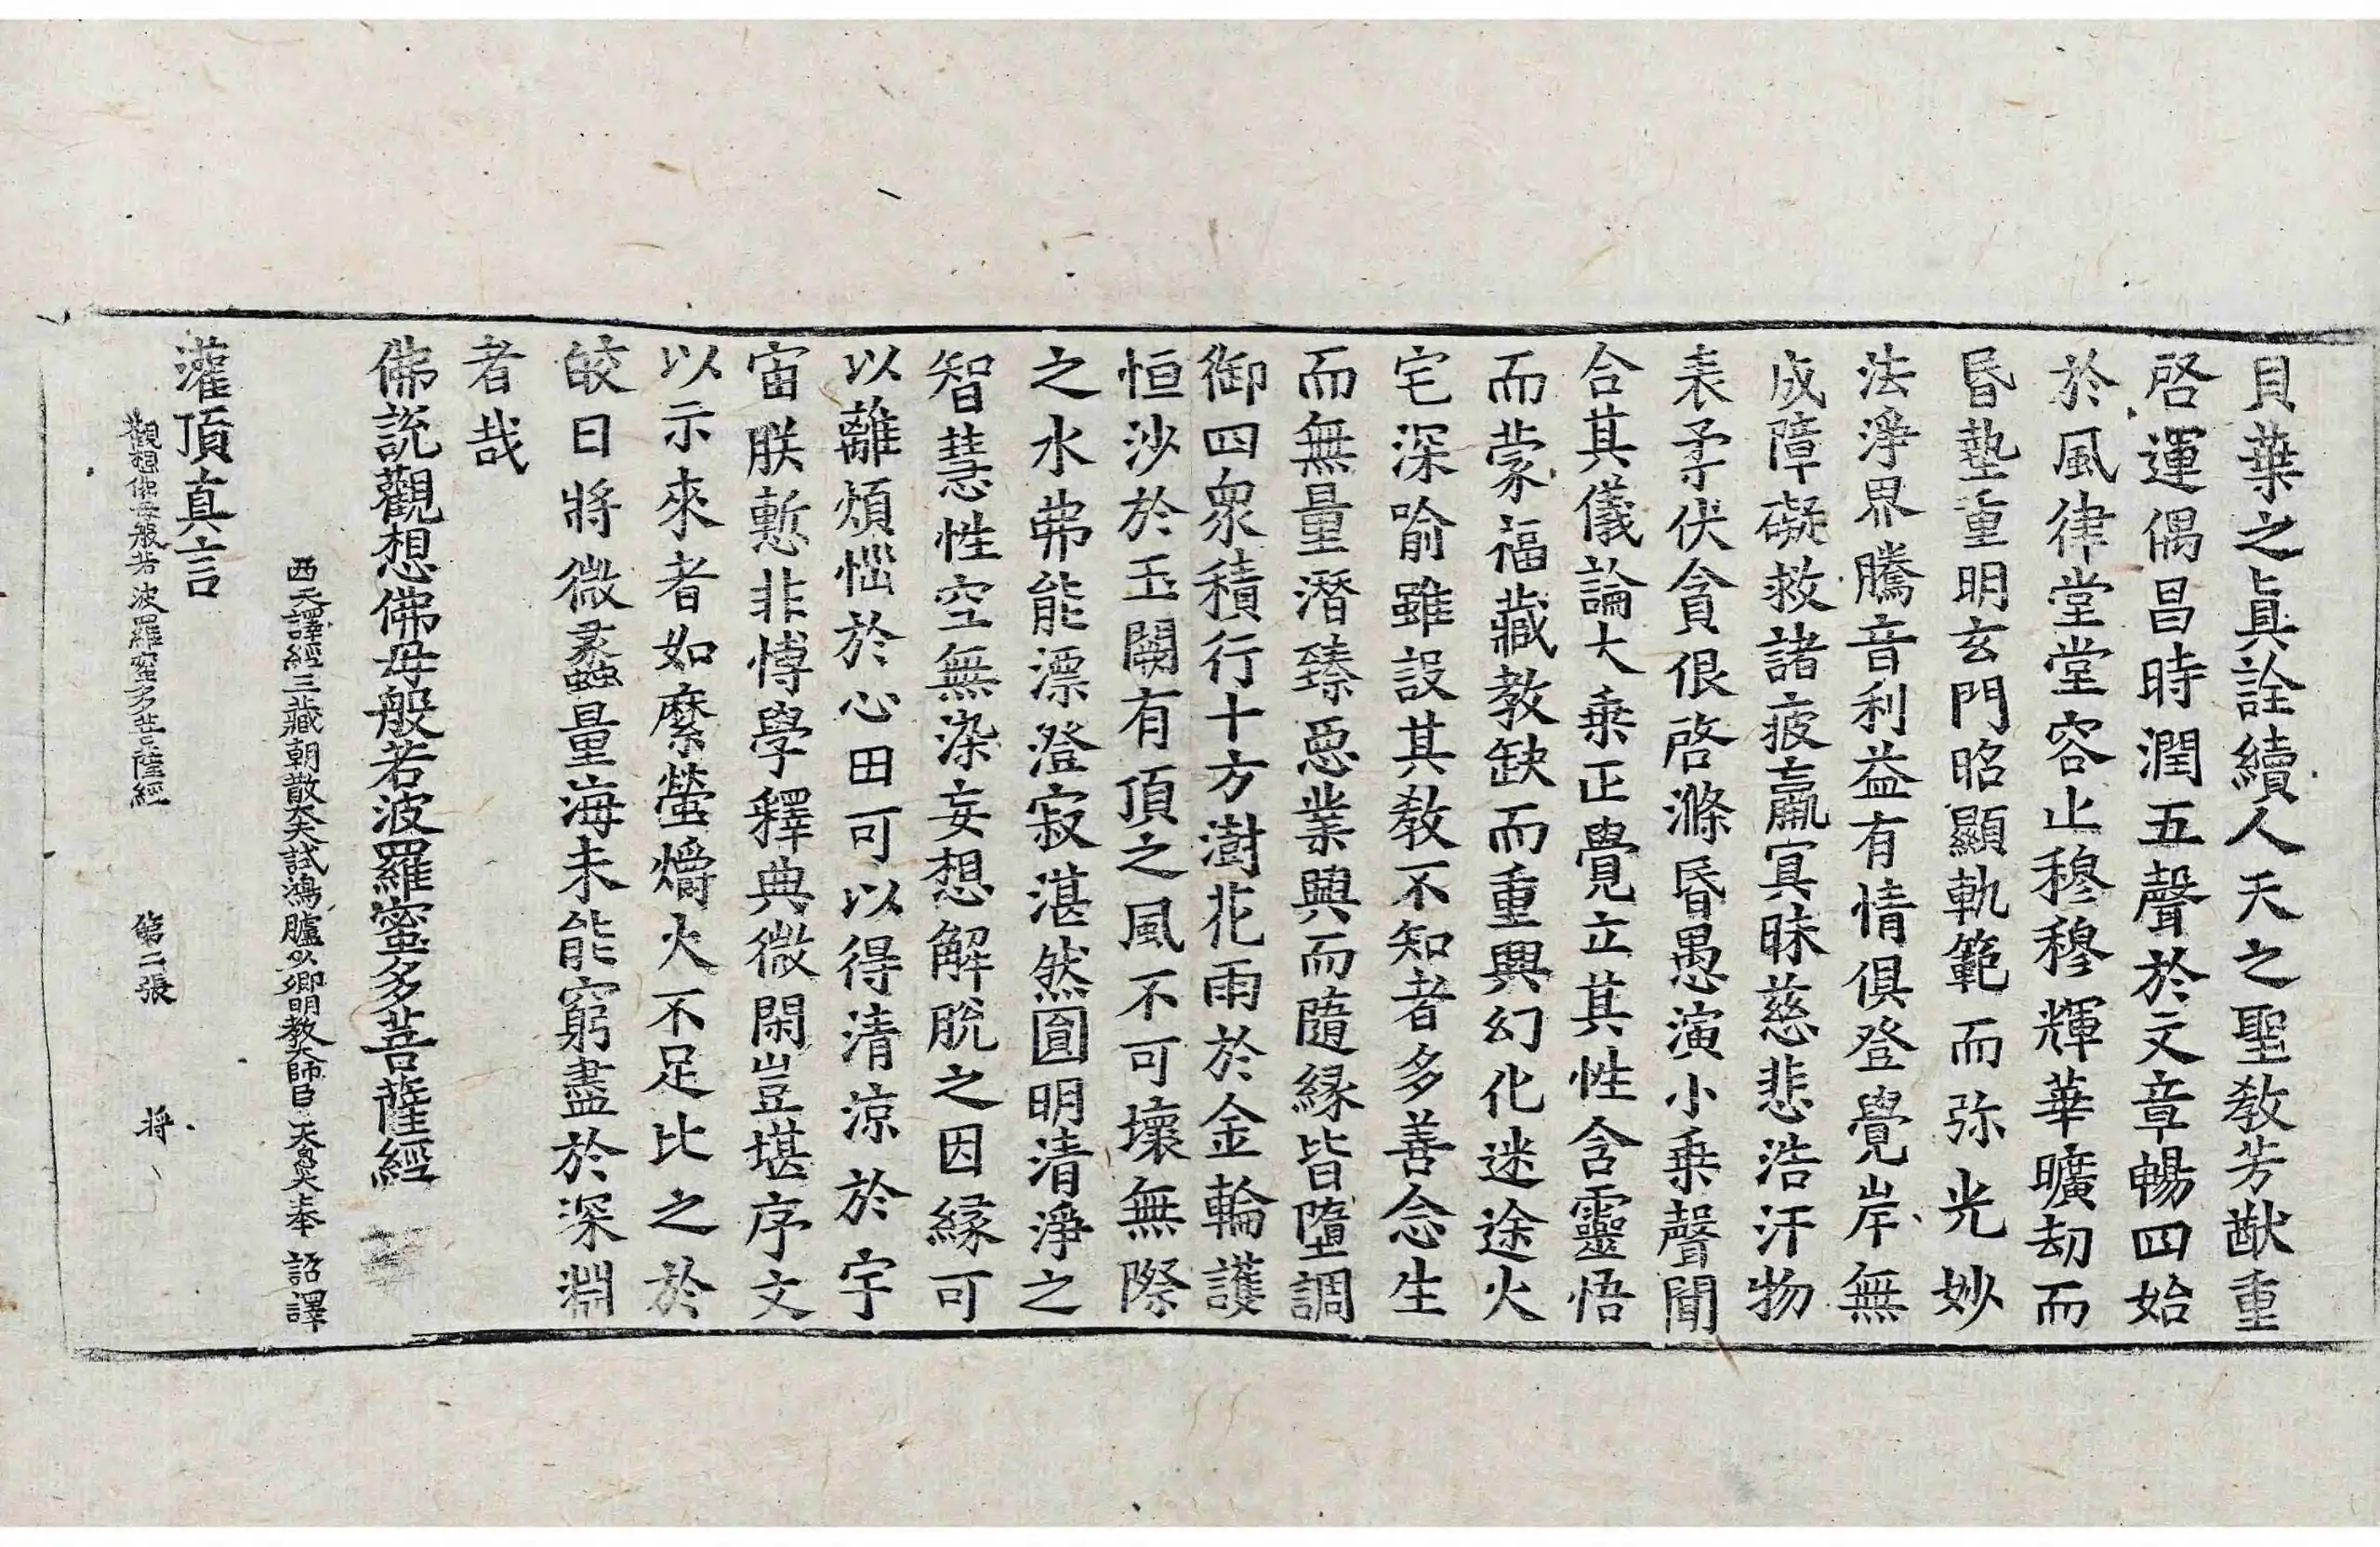 貝葉之眞詮續人天之聖教芳猷重
啓運偶昌時潤五聲於文章暢四始
於風律堂堂容止穆穆輝華曠劫而
昏墊重明玄門昭顯軌範而弥光妙
法淨界騰音利益有情俱登覺岸無
成障礙救諸疲羸㝠昧慈悲浩汗物
表柔伏貪佷啓滌昏愚演小乗聲聞
合其儀論大乗正覺立其性含靈悟
而蒙福藏教缺而重興幻化迷途火
宅深喻雖設其教不知者多善念生
而無量潛臻惡業興而隨緣皆墮調
御四衆積行十方澍花雨於金輪護
恒沙於玉闕有頂之風不可壞無際
之水弗能漂澄寂湛然圎明清淨之
智慧性空無染妄想解脫之因緣可
以離煩惱於心田可以得清涼於宇
宙朕慙非博學釋典微閑豈堪序文
以示來者如縻螢爝火不足比之於
皎日將微蠡量海未能窮盡於深淵
者哉
佛說觀想佛母般若波羅蜜多菩薩經
西天譯經三藏朝散大夫試鴻臚少卿明教大師臣天息災奉 詔譯
灌頂真言
觀想佛母般若波羅蜜多菩薩經 第二張 将